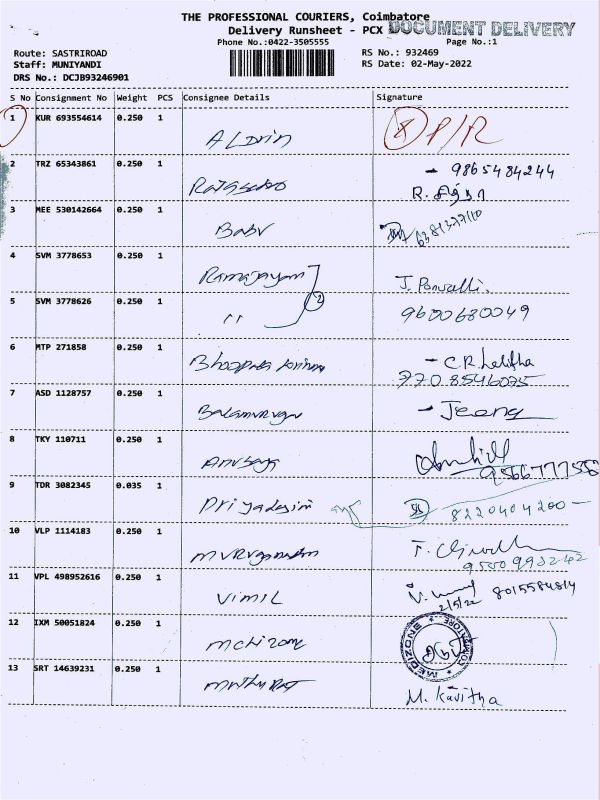 THE PROFESSIONAL COURIERS, Coimbatore
Delivery Runsheet - PCX DOCUMENT DELIVERY
Phone No.:0422-3505555 Page No.:1
Route: SASTRIROAD RS No.: 932469
Staff: MUNIYANDI RS Date: 02-May-2022
DRS No.: DCJB93246901
S No Consignment No Weight PCS Consignee Details Signature
1 KUR 693554614 0.250 1 ALDrin P/R
2 TRZ 65343861 0.250 1 - 9865484244
R. சித்ரா
3 MEE 530142664 0.250 1 Babv
4 SVM 3778653 0.250 1 Ramajayam J. Ponvalli.
5 SVM 3778626 0.250 1 11 2 9600680049
6 MTP 271858 0.250 1 - C.R. Lalitha
770 8546075
7 ASD 1128757 0.250 1 Balamurugan - Jeeng
8 TKY 110711 0.250 1 Anusaya
9 TDR 3082345 0.035 1 Priyadasini 8220404200 -
10 VLP 1114183 0.250 1
11 VPL 498952616 0.250 1 Vimil 8015584814
2/5/22
12 IXM 50051824 0.250 1 MEDIZONE
13 SRT 14639231 0.250 1 M. Kavitha